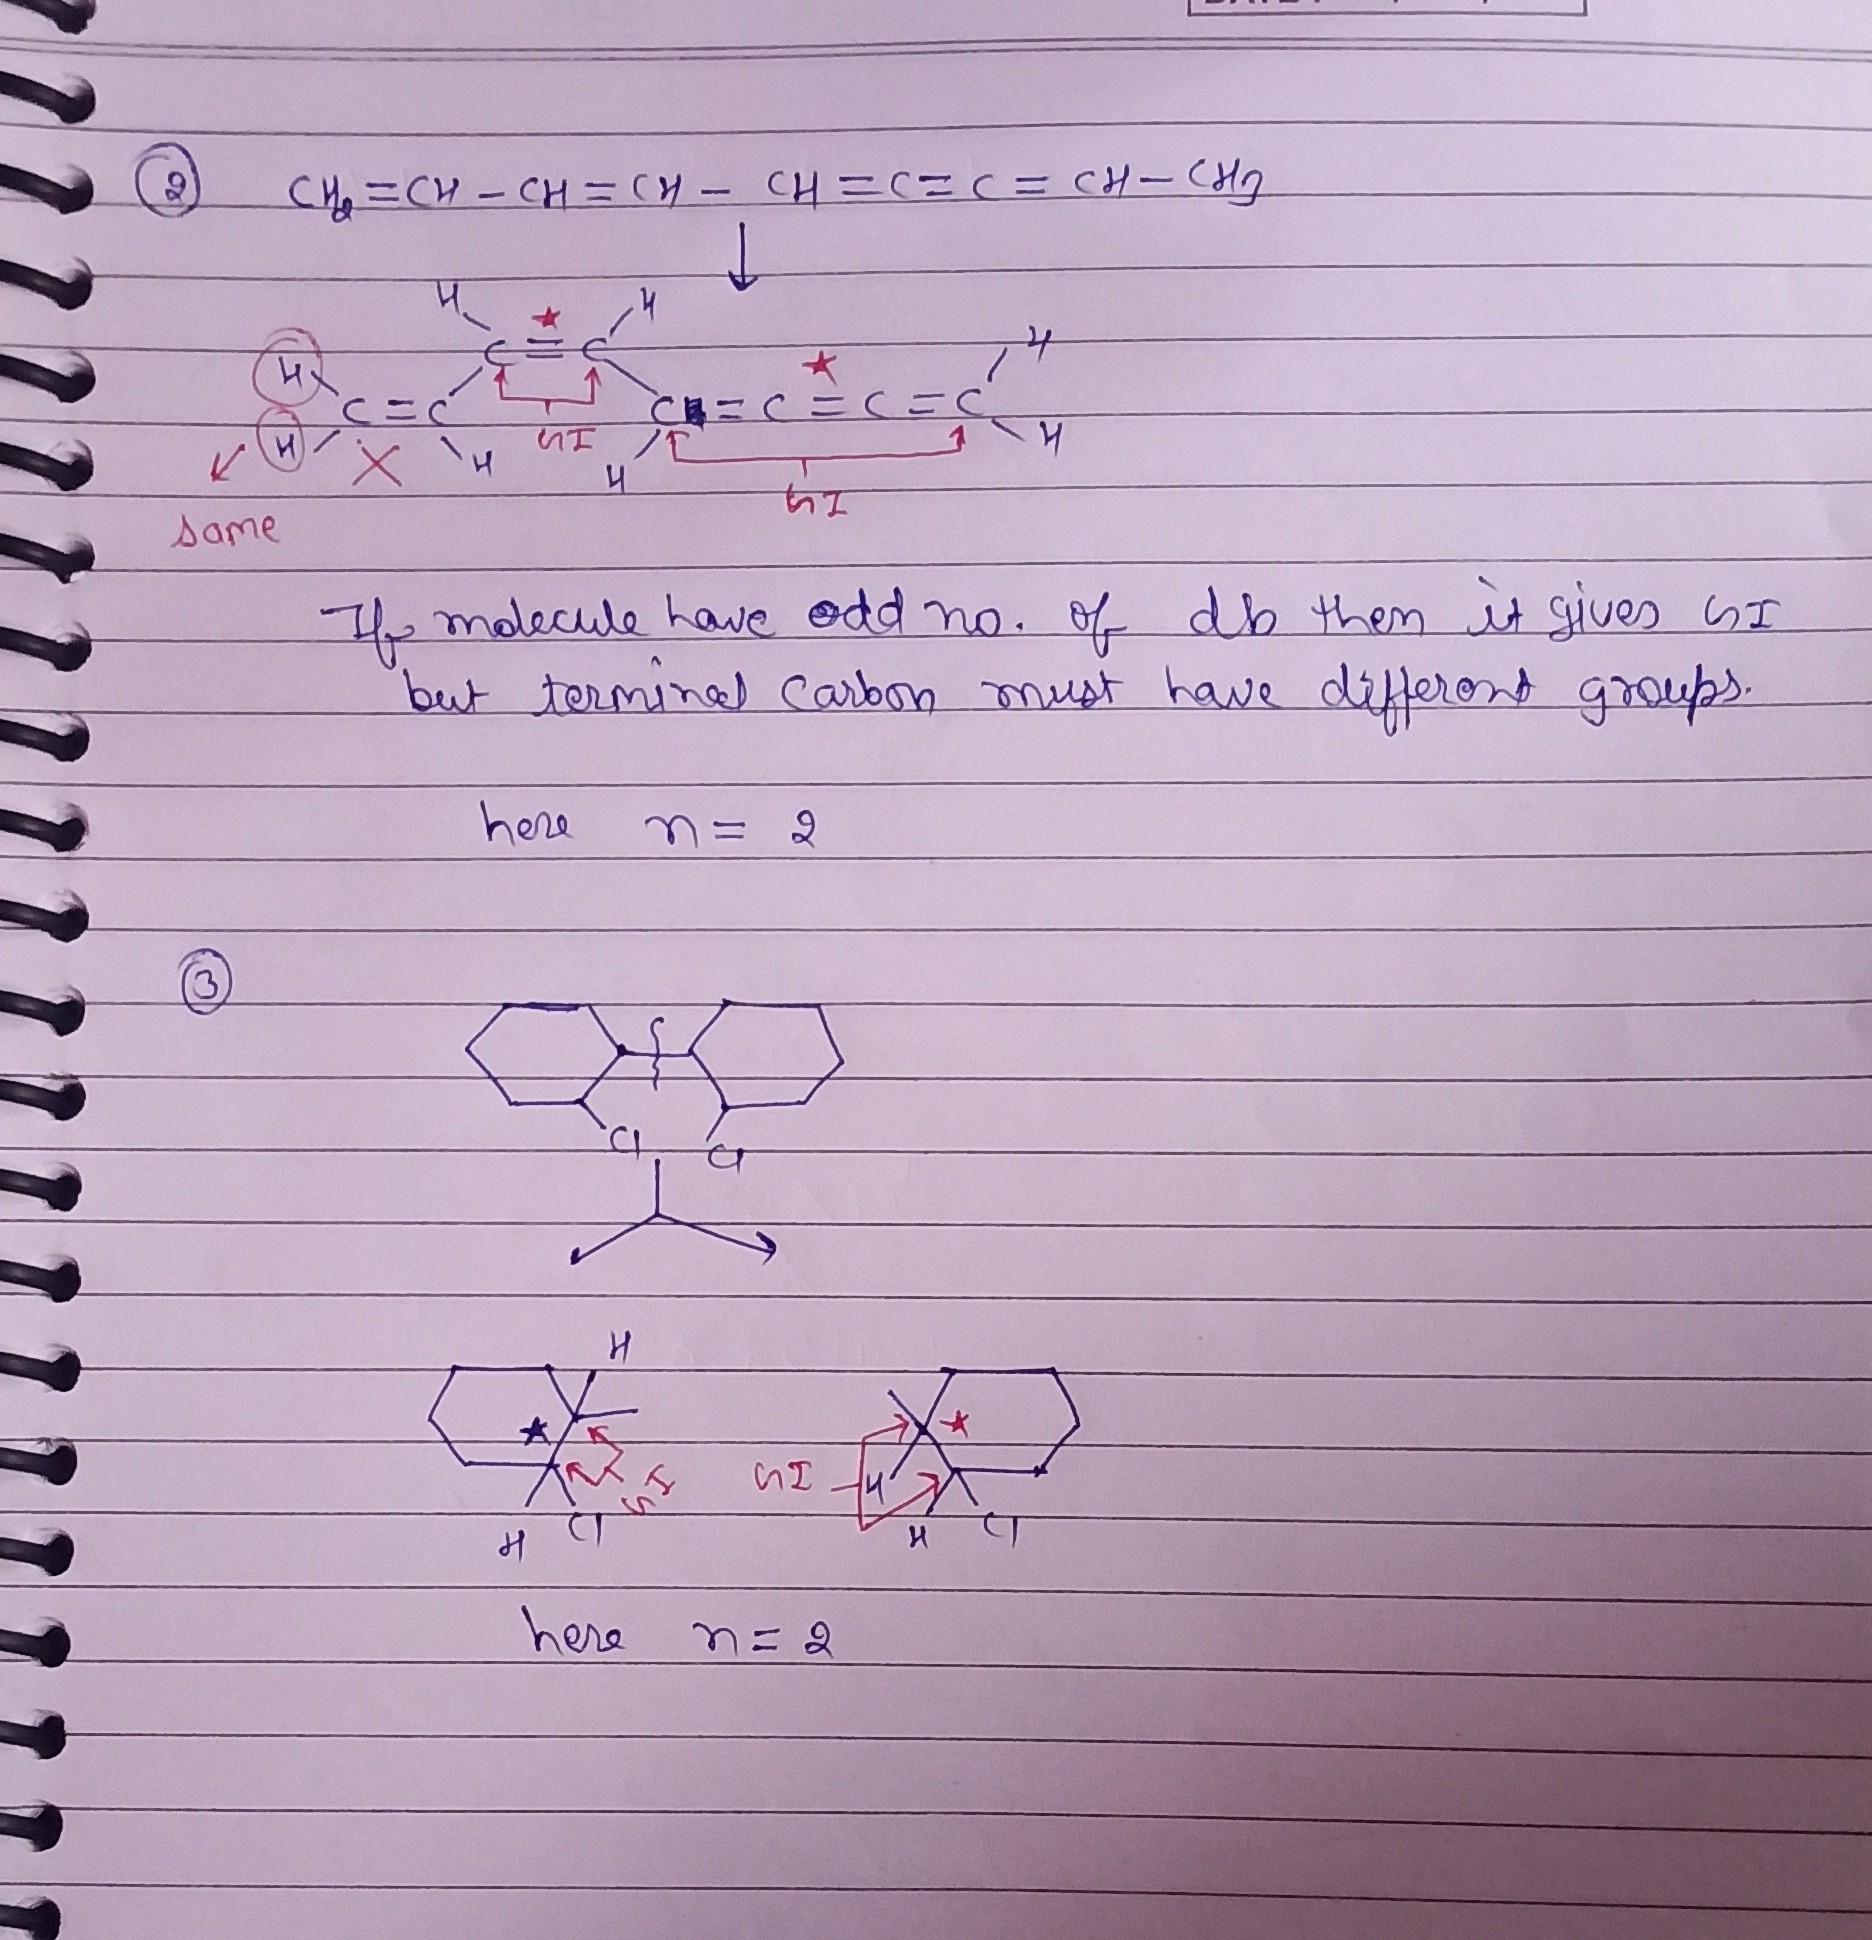 ② CH2=CH-CH=CH-CH=C=C=CH-CH3
H H
H C=C H
C=C CH=C=C=C
H H GI H H
GI
same
If molecule have odd no. of db then it gives GI
but terminal carbon must have different groups.
here n= 2
③
Cl Cl
H
GI GI H
H Cl H Cl
here n=2